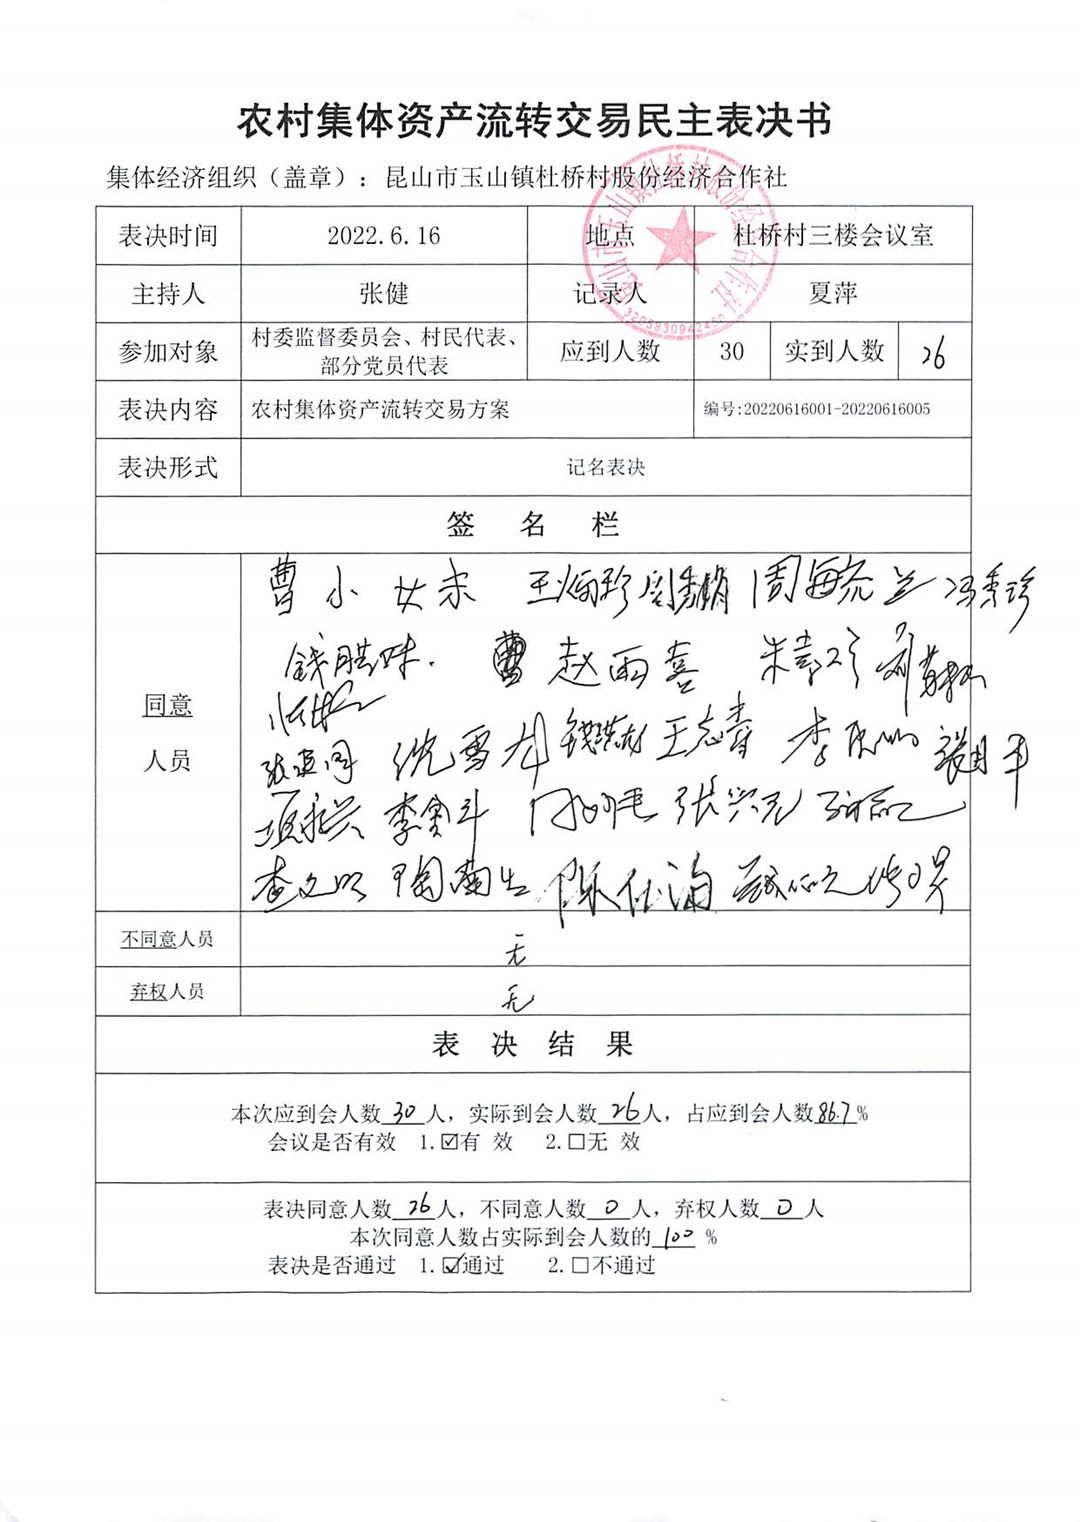 农村集体资产流转交易民主表决书
集体经济组织（盖章）：昆山市玉山镇杜桥村股份经济合作社
表决时间 2022.6.16 地点 杜桥村三楼会议室
主持人 张健 记录人 夏萍
参加对象 村委监督委员会、村民代表、部分党员代表 应到人数 30 实到人数 26
表决内容 农村集体资产流转交易方案 编号:20220616001-20220616005
表决形式 记名表决
签 名 栏
同意
人员
曹小女 周 冯秀珍
钱 赵雨喜 朱
沈雪 王志寿 李
李 张兴元
陶菊生 陈仕
不同意人员 无
弃权人员 无
表 决 结 果
本次应到会人数30人，实际到会人数26人，占应到会人数86.7%
会议是否有效 1.☑有 效 2.□无 效
表决同意人数26人，不同意人数0人，弃权人数0人
本次同意人数占实际到会人数的100%
表决是否通过 1.☑通过 2.□不通过
昆山市玉山镇杜桥村股份经济合作社
3205830942450